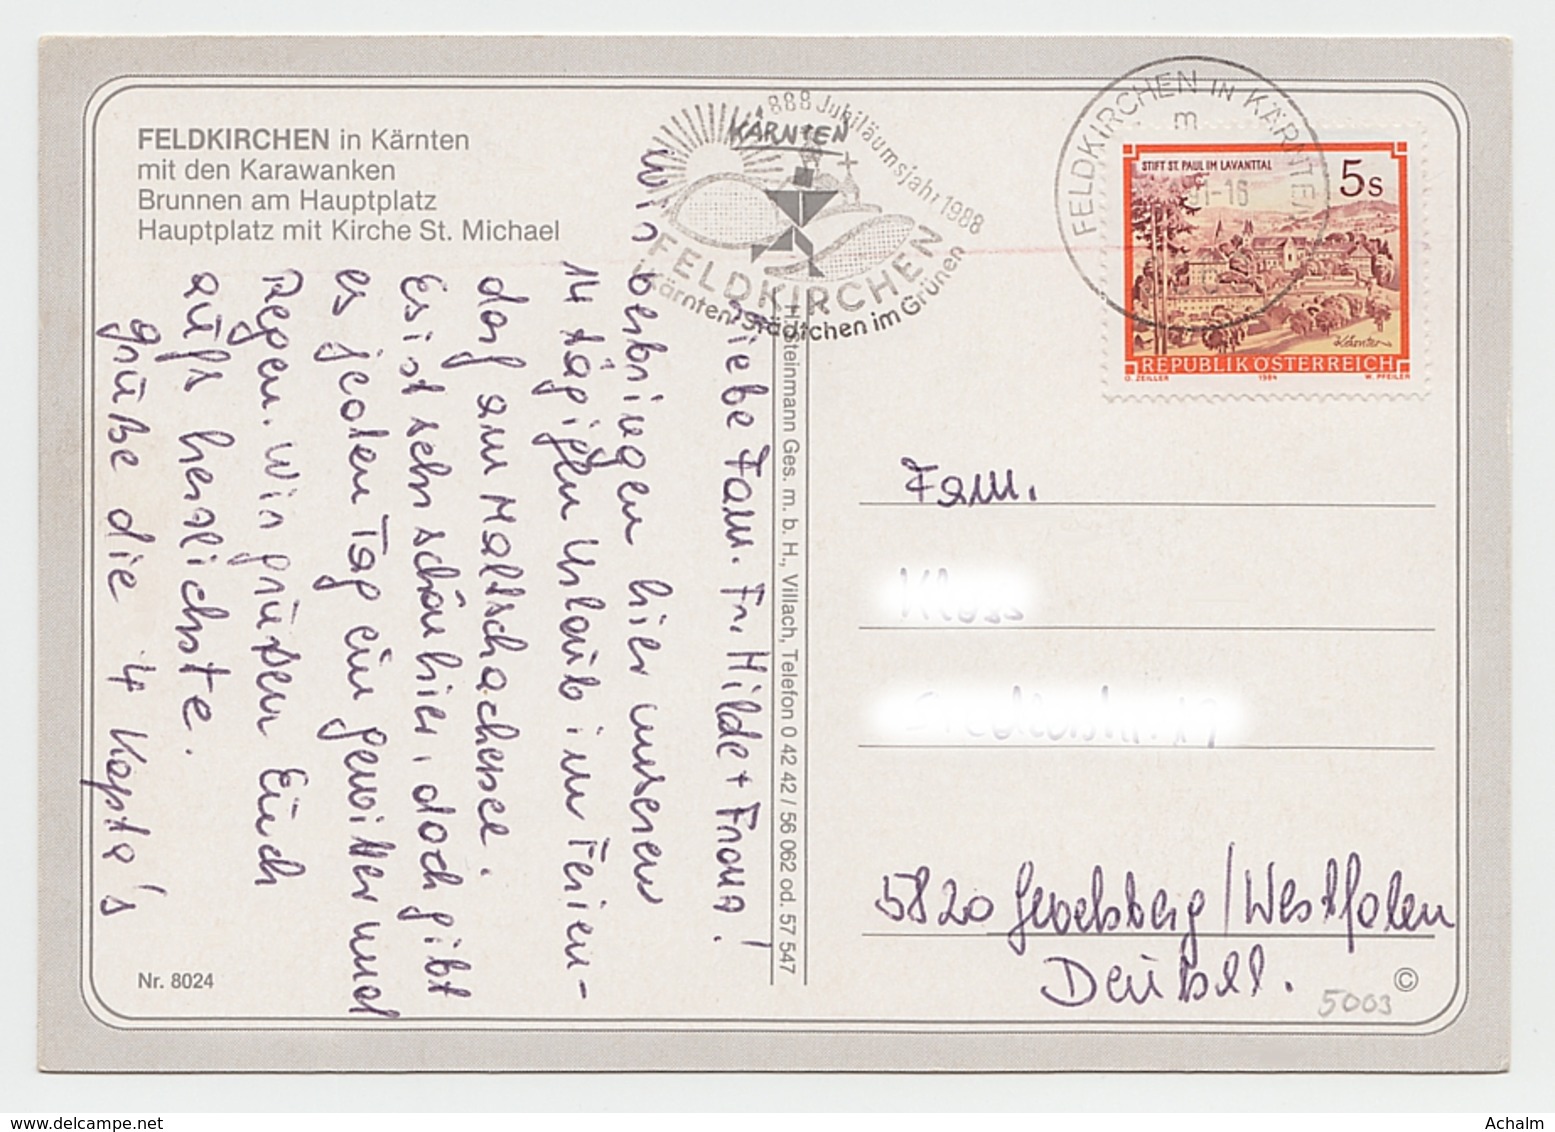 FELDKIRCHEN in Kärnten
mit den Karawanken
Brunnen am Hauptplatz
Hauptplatz mit Kirche St. Michael
888 Jubiläumsjahr 1988
KÄRNTEN
FELDKIRCHEN
Kärntens Städtchen im Grünen
FELDKIRCHEN IN KÄRNTEN
m
91-16
STIFT ST. PAUL IM LAVANTTAL
5s
Kärnten
REPUBLIK ÖSTERREICH
O. ZEILLER 1984 W. PFEILER
Liebe Fam. Fr. Hilde + Franz!
Wir verbringen hier unseren
14 tägigen Urlaub im Ferien-
dorf am Maltschachersee.
Es ist sehr schön hier, doch gibt
es jeden Tag ein Gewitter und
Regen. Wir grüßen Euch
aufs herzlichste.
Grüße die 4 Kopta's
H. Steinmann Ges. m. b. H., Villach, Telefon 0 42 42 / 56 062 od. 57 547
Fam.
5820 Gevelsberg / Westfalen
Nr. 8024
©
5003
Achalm